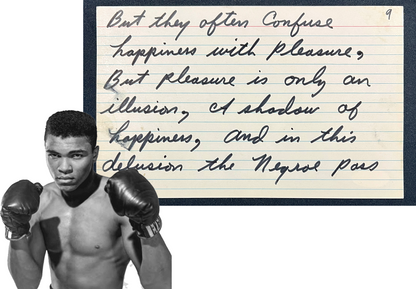 9
But they often Confuse
happiness with pleasure,
But pleasure is only an
illusion, A shadow of
happiness, And in this
delusion the Negroe pass